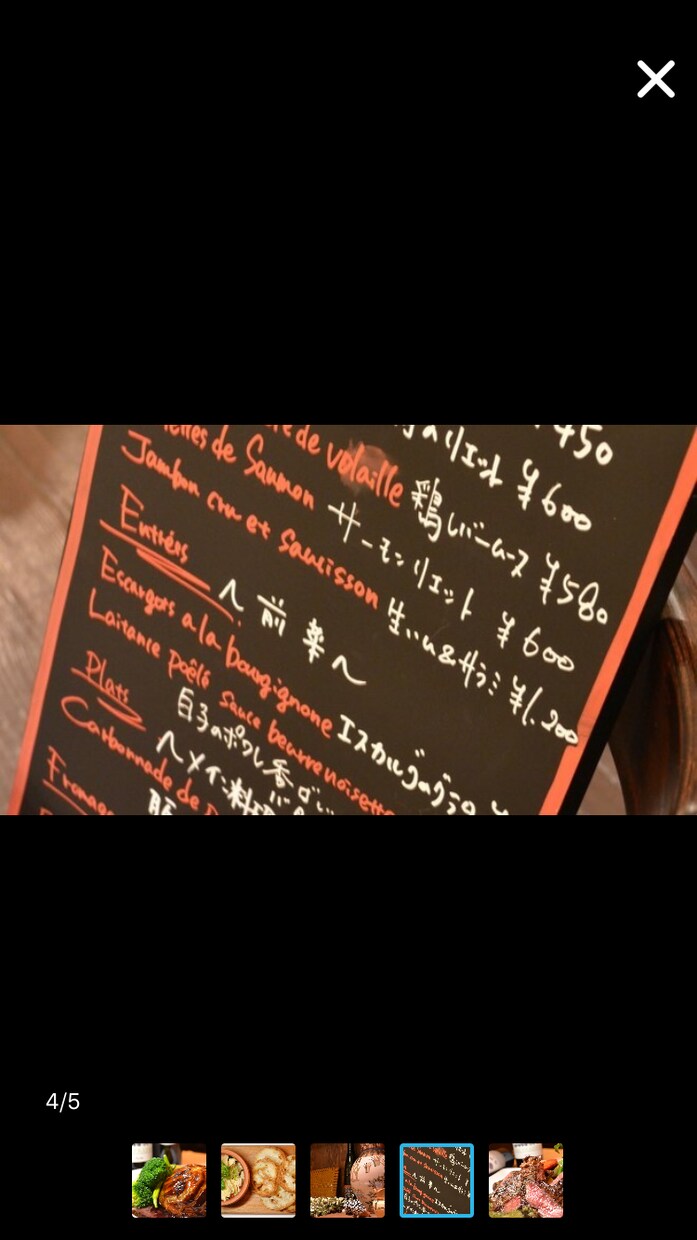 ¥450
リエット ¥600
de volaille 鶏レバームース ¥580
de Saumon サーモンリエット ¥600
Jambon cru et Saucisson 生ハム&サラミ ¥1,200
Entrées 〜前菜〜
Escargots a la bourgignone エスカルゴのグラ
Laitance poêlé sauce beurre noisette
白子のポワレ 香
Plats 〜メイン料理
Carbonnade de
豚
Fromage
4/5